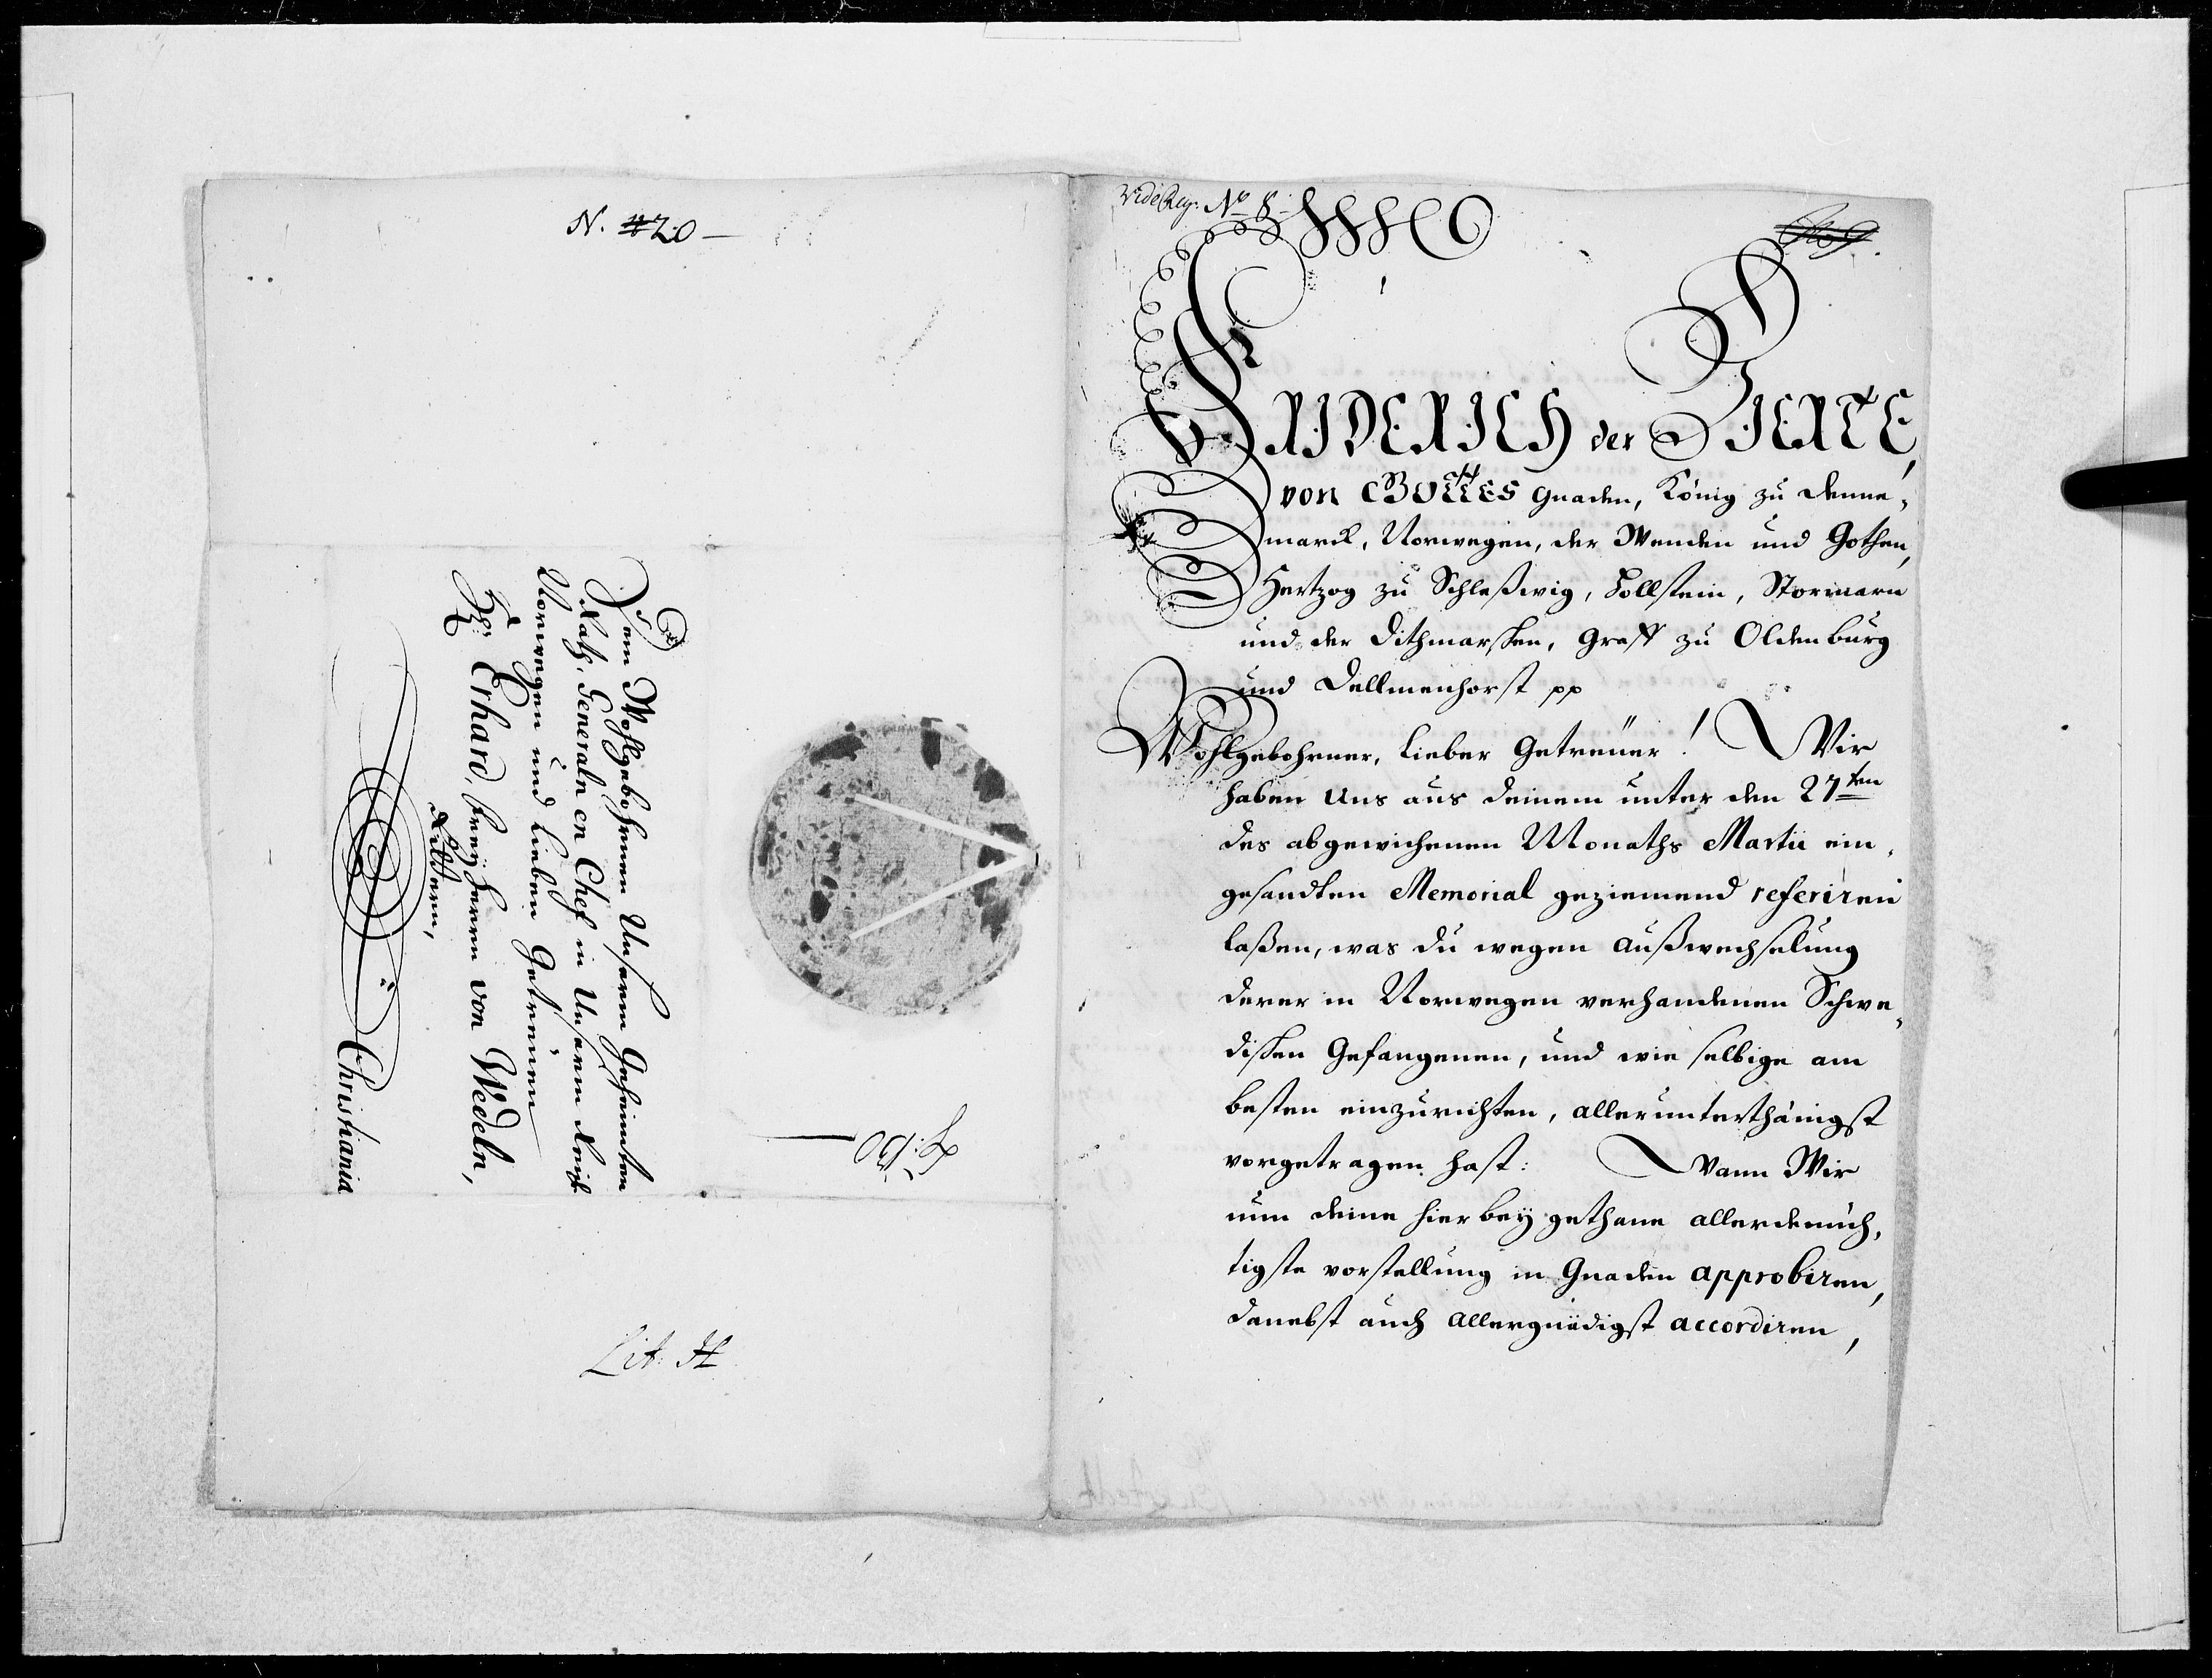 N. #20
Dem Wohlgebohrnen Unserm Geheimten
Rath, Generaln en Chef in Unserm Reich
Norwegen und lieben Getreüen
Hr: Erhard, freÿherrn von Wedeln,
Rittern,
Christiania
Lit. H
Vide Reg: No 8
FRIDERICH der VIERTE,
von GOTTES Gnaden, König zu Denne,
marck, Norwegen, der Wenden und Gothen,
Hertzog zu Schleßwig, Hollstein, Stormarn
und der Dithmarschen, Graff zu Oldenburg
und Dellmenhorst pp
Wohlgebohrner, Lieber Getreüer! Wir
haben Uns aus deinem unter den 27ten
des abgewichenen Monaths Martii ein,
gesandten Memorial geziemend referiren
laßen, was du wegen Außwechselung
derer in Norwegen verhandenen Schwe,
dischen Gefangenen, und wie selbige am
besten einzurichten, allerunterthänigst
vorgetragen hast: Wann Wir
nun deine hierbeÿ gethane allerdemüh,
tigste vorstellung in Gnaden approbiren,
danebst auch allergnädigst accordiren,